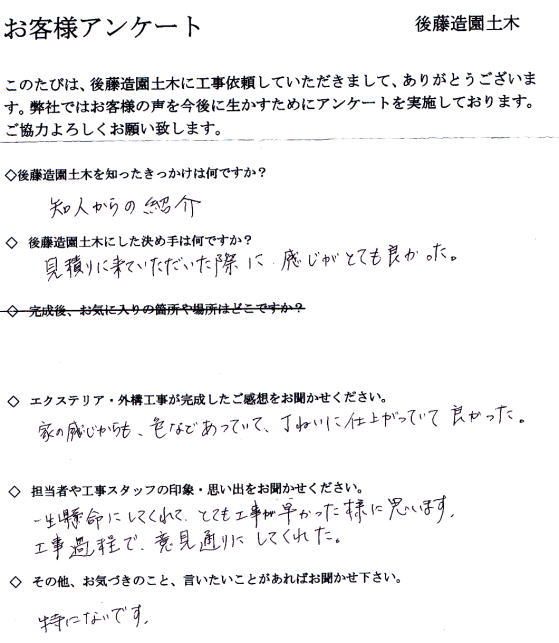 お客様アンケート
後藤造園土木
このたびは、後藤造園土木に工事依頼していただきまして、ありがとうございま
す。弊社ではお客様の声を今後に生かすためにアンケートを実施しております。
ご協力よろしくお願い致します。
◇後藤造園土木を知ったきっかけは何ですか?
知人からの紹介
◇ 後藤造園土木にした決め手は何ですか?
見積りに来ていただいた際に、感じがとても良かった。
◇ 完成後、お気に入りの箇所や場所はどこですか?
◇ エクステリア・外構工事が完成したご感想をお聞かせください。
家の感じからも、色などあっていて、丁ねいに仕上がっていて良かった。
◇ 担当者や工事スタッフの印象・思い出をお聞かせください。
一生懸命にしてくれて、とても工事が早かった様に思います。
工事過程で、意見通りにしてくれた。
◇ その他、お気づきのこと、言いたいことがあればお聞かせ下さい。
特にないです。